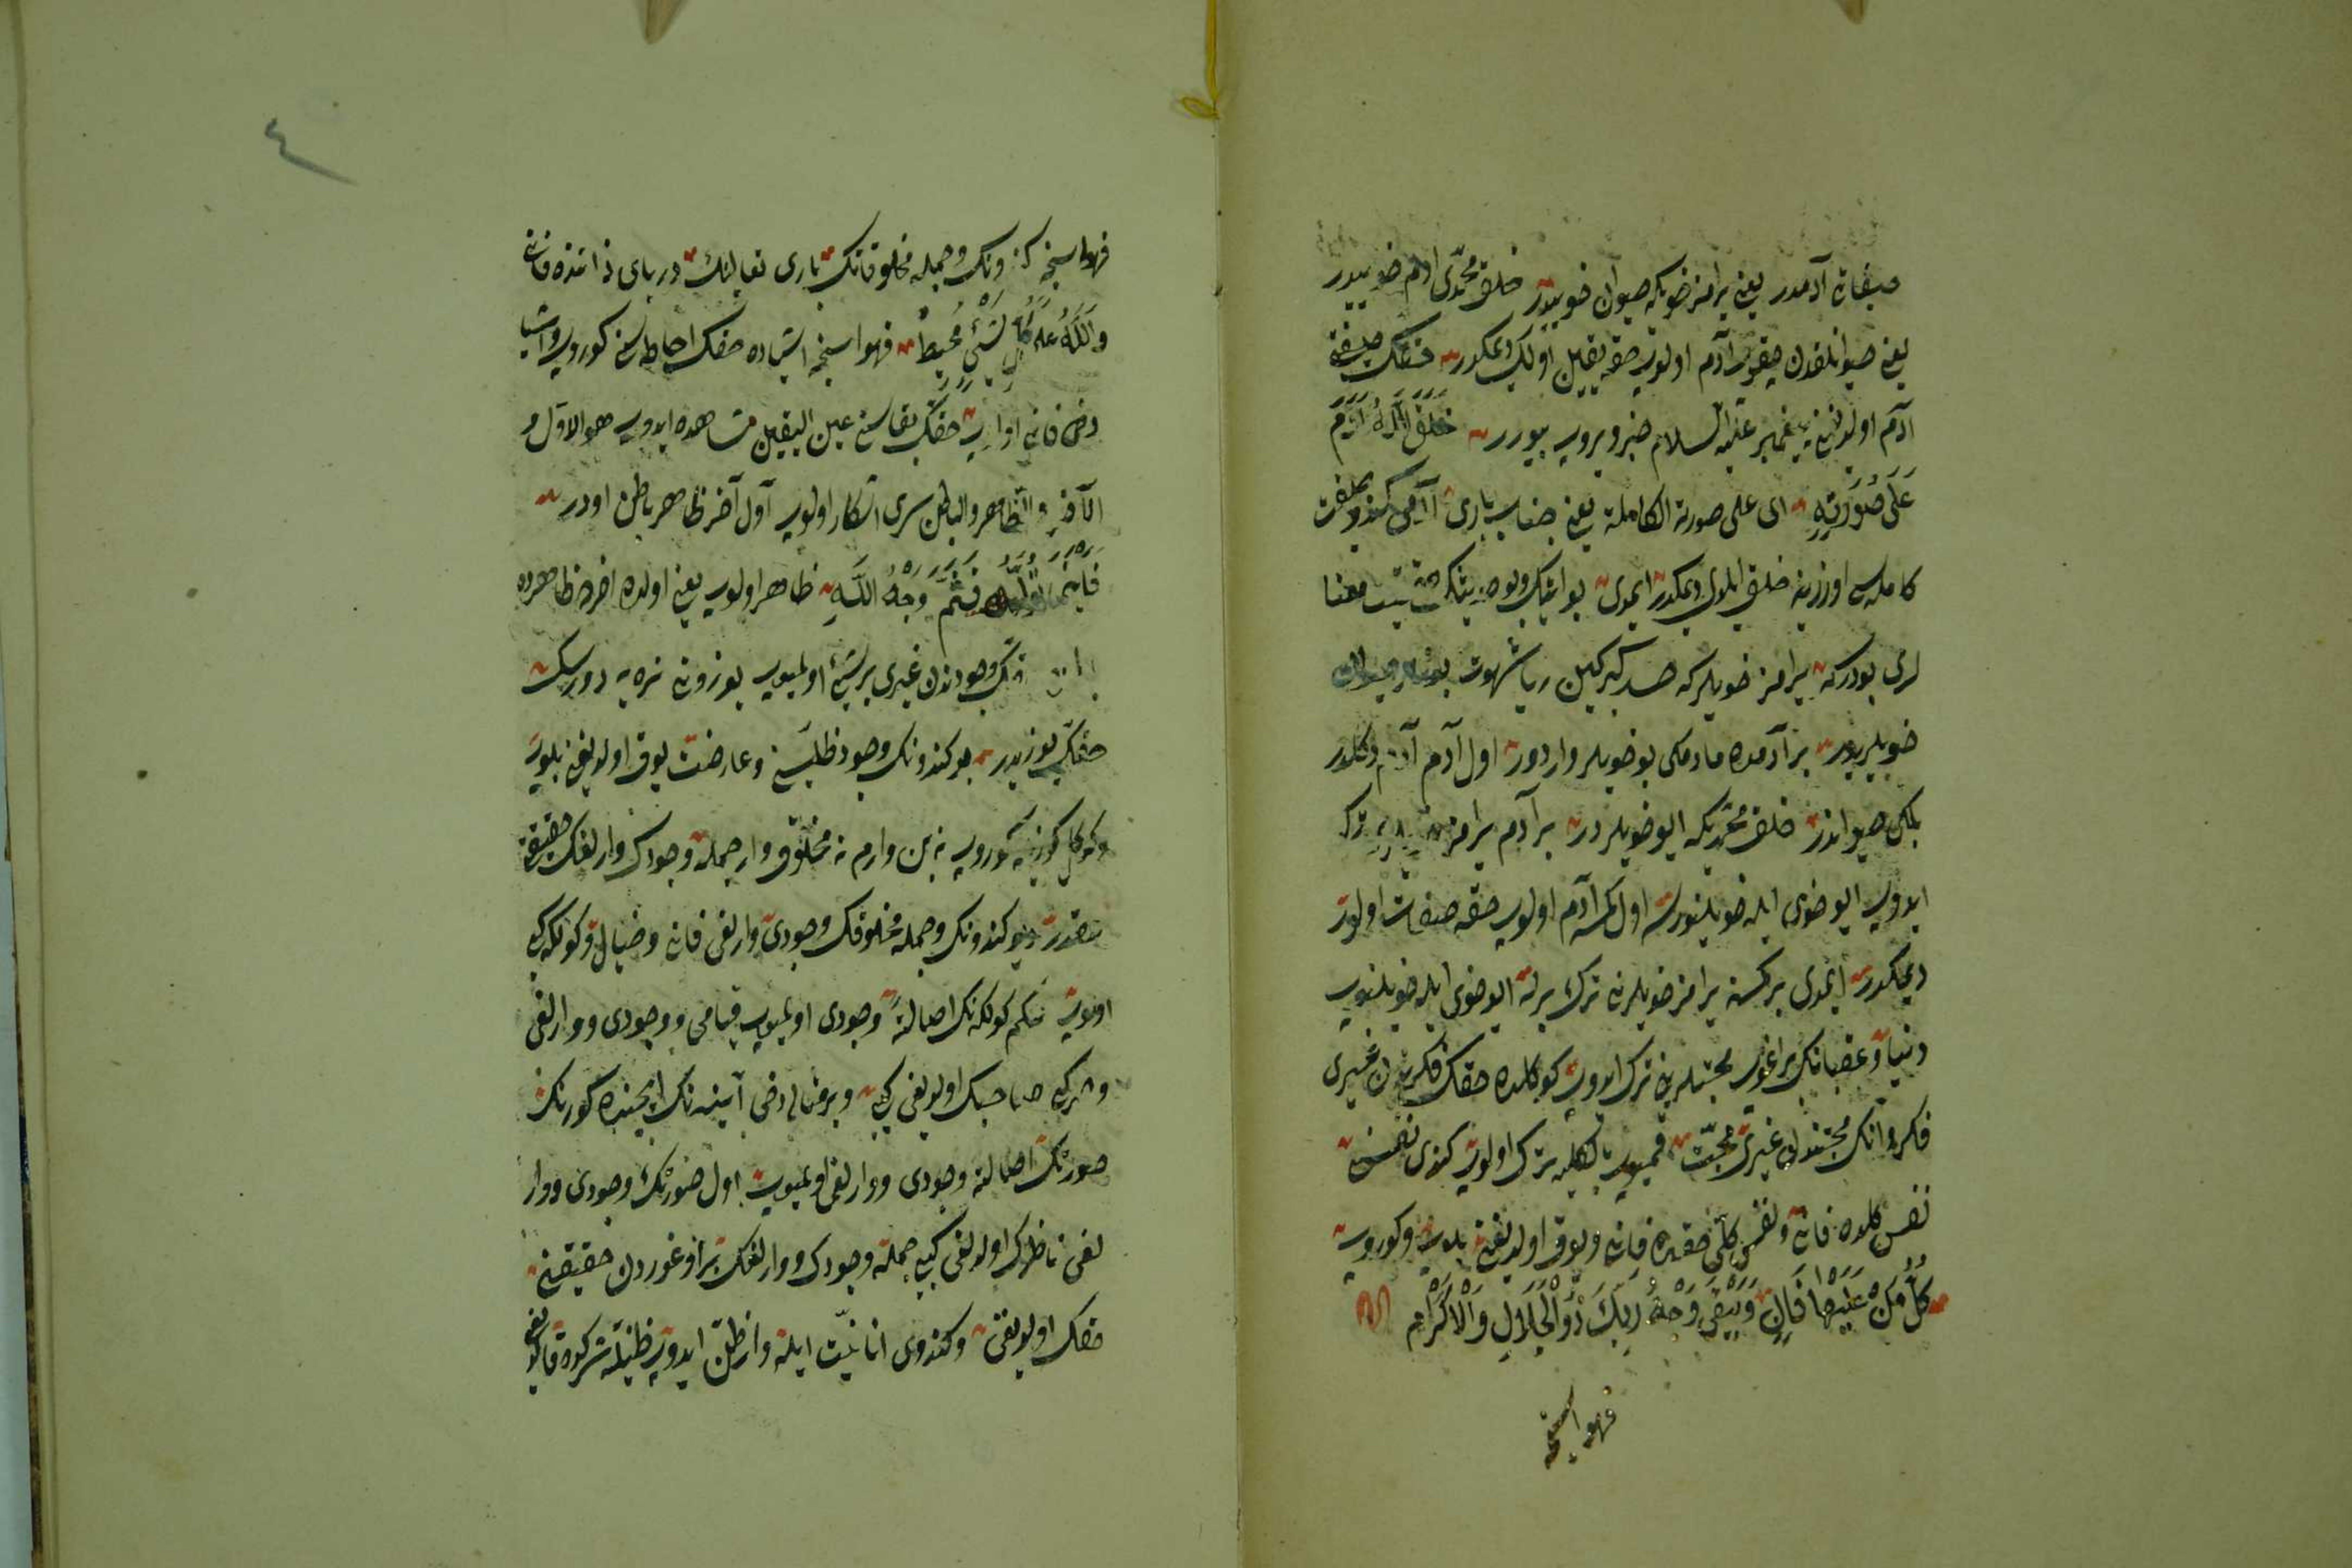 صفاته آدمدر یعنی یرامز خویکه حیوان خویيدر خلق محمدی ادم خوییدر
یعنی حیوانلقدن چیقوب آدم اولوب حقه یقین اولیک دیمکدر حقک صفته
آدم اولدیغنی پیغمبر علیه السلام خبر ویروب بیورر خَلَقَ اللهُ آدَمَ
عَلَى صُوُرَتِهِ ای علی صورة الکاملة یعنی جناب باری آدمی کندو صفت
کامله سی اوزرینه خلق ایلدی دیمکدر ایمدی بو ایتک وبو حدیثک معنا
لری بودرکه یرامز خویلرکه حسد کبر کین ریا شهوت بونلر حیوان
خویلریدر بر آدمده مادمکی بو خویلر واردور اول آدم آدم دکلدر
بلکی حیواندر خلق محمدیکه ایو خویلردر بر آدم یرامز ترک
ایدوب ایو خوی ایله خویلنورسه اول کمسه آدم اولوب حقه صفات اولور
دیمکدر ایمدی بر کمسنه یرامز خویلرنی ترک برله ایو خوی ایله خویلنوب
دنیا و عقبانک محبتلرینی ترک ایدوب کوکلده حقک فکرندن غیری
فکر و انک محبتندن غیری محبت قومیوب بالکلیه ترک اولوب کندی نفسن
نفس کلده فانی و نفس کلی حقده فانی ویوق اولدیغنی بلوب وکوروب
كُلُّ مَنْ عَلَيْهَا فَانٍ وَيَبْقَى وَجْهُ رَبِّكَ ذُو الْجَلَالِ وَالْاِكْرَامِ
فهواسنجه
فهواسنجه کندونک وجمله مخلوقاتک باری تعالینک دریای ذاتنده فانی
وَاللهُ عَلَى كُلِّ شَيْءٍ مُحِيطٌ فهواسنجه اشیاده حقک احاطه سن کوروب واشیا
دخی فانی اولوب حقک بقاسنی عین الیقین مشاهده ایدوب هو الاول و
الآخر والظاهر والباطن سری اشکار اولوب آول آخر ظاهر باطن اودر
فَاَيْنَمَا تُوَلُّوا فَثَمَّ وَجْهُ اللهِ ظاهر اولوب یعنی اولده اخرده ظاهرده
وجودندن غیری بر شیئ اولمیوب یوزونی نره یه دورسک
حقک یوزیدر هر کندونک وجود ظلیسنی وعارضت یوق اولدیغنی بلوب
وکوکل کوزیله کوروب نه بن وارم نه مخلوق وار جمله وجودک وارلغک حقیقة
حقدر دیو کندونک وجمله مخلوقک وجودی وارلغی فانی وخیال وکولکه کبی
اولوب نتکم کولکه نک اصالة وجودی اولمیوب قیامی ووجودی ووارلغی
صاحبک اولدیغی کبی وبر مثالی دخی آیینه نک ایچنده کورنک
صورتک اصالة وجودی ووارلغی اولمیوب اول صورتک وجودی ووار
لغی ناظرک اولدیغی کبی جمله وجودک ووارلغک بر اوغوردن حقیقتی
حقک اولدیغنی وکندوی انانیت ایله وار ظن ایدوب ظنیله شرکده قالدیغی